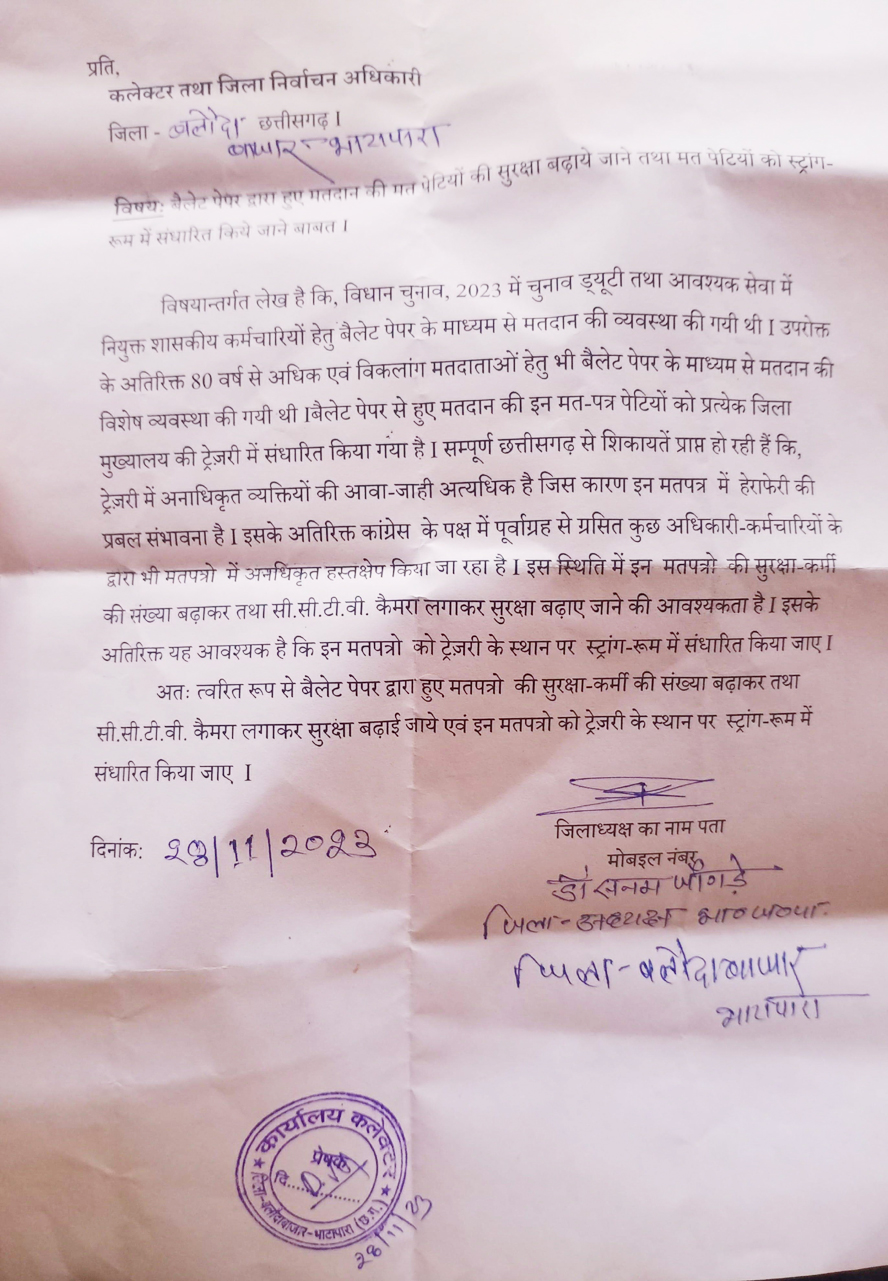 प्रति,
कलेक्टर तथा जिला निर्वाचन अधिकारी
जिला - बलौदा छत्तीसगढ़ I
बाजार-भाटापारा
विषय: बैलेट पेपर द्वारा हुए मतदान की मत पेटियों की सुरक्षा बढ़ाये जाने तथा मत पेटियों को स्ट्रांग-
रूम में संधारित किये जाने बाबत I
विषयान्तर्गत लेख है कि, विधान चुनाव, 2023 में चुनाव ड्यूटी तथा आवश्यक सेवा में
नियुक्त शासकीय कर्मचारियों हेतु बैलेट पेपर के माध्यम से मतदान की व्यवस्था की गयी थी I उपरोक्त
के अतिरिक्त 80 वर्ष से अधिक एवं विकलांग मतदाताओं हेतु भी बैलेट पेपर के माध्यम से मतदान की
विशेष व्यवस्था की गयी थी Iबैलेट पेपर से हुए मतदान की इन मत-पत्र पेटियों को प्रत्येक जिला
मुख्यालय की ट्रेज़री में संधारित किया गया है I सम्पूर्ण छत्तीसगढ़ से शिकायतें प्राप्त हो रही हैं कि,
ट्रेज़री में अनाधिकृत व्यक्तियों की आवा-जाही अत्यधिक है जिस कारण इन मतपत्र में हेराफेरी की
प्रबल संभावना है I इसके अतिरिक्त कांग्रेस के पक्ष में पूर्वाग्रह से ग्रसित कुछ अधिकारी-कर्मचारियों के
द्वारा भी मतपत्रो में अनधिकृत हस्तक्षेप किया जा रहा है I इस स्थिति में इन मतपत्रो की सुरक्षा-कर्मी
की संख्या बढ़ाकर तथा सी.सी.टी.वी. कैमरा लगाकर सुरक्षा बढ़ाए जाने की आवश्यकता है I इसके
अतिरिक्त यह आवश्यक है कि इन मतपत्रो को ट्रेज़री के स्थान पर स्ट्रांग-रूम में संधारित किया जाए I
अतः त्वरित रूप से बैलेट पेपर द्वारा हुए मतपत्रो की सुरक्षा-कर्मी की संख्या बढ़ाकर तथा
सी.सी.टी.वी. कैमरा लगाकर सुरक्षा बढ़ाई जाये एवं इन मतपत्रो को ट्रेज़री के स्थान पर स्ट्रांग-रूम में
संधारित किया जाए I
जिलाध्यक्ष का नाम पता
दिनांक: 28/11/2023
मोबइल नंबर
डॉ सनम जांगड़े
जिला-अध्यक्ष भा०ज०पा.
जिला-बलौदाबाजार
भाटापारा
कार्यालय कलेक्टर
प्रेषक
दि.
जिला-बलौदाबाजार-भाटापारा (छ.ग.)
28/11/23